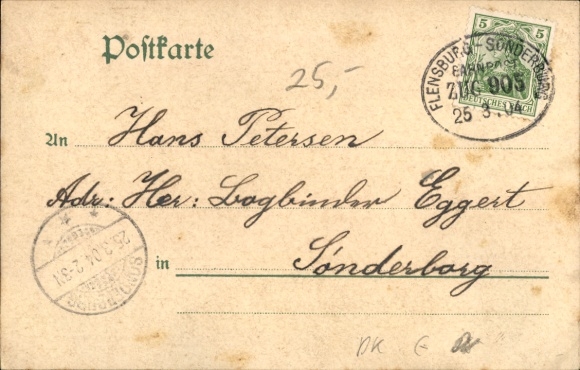 Postkarte
25,-
5 5
DEUTSCHES REICH
FLENSBURG - SONDERBURG
BAHNPOST
ZUG 905
25 3 04
An Hans Petersen
Adr: Her: Bogbinder Eggert
in Sønderborg
SONDERBURG
25.3.04.2-3N
DK G